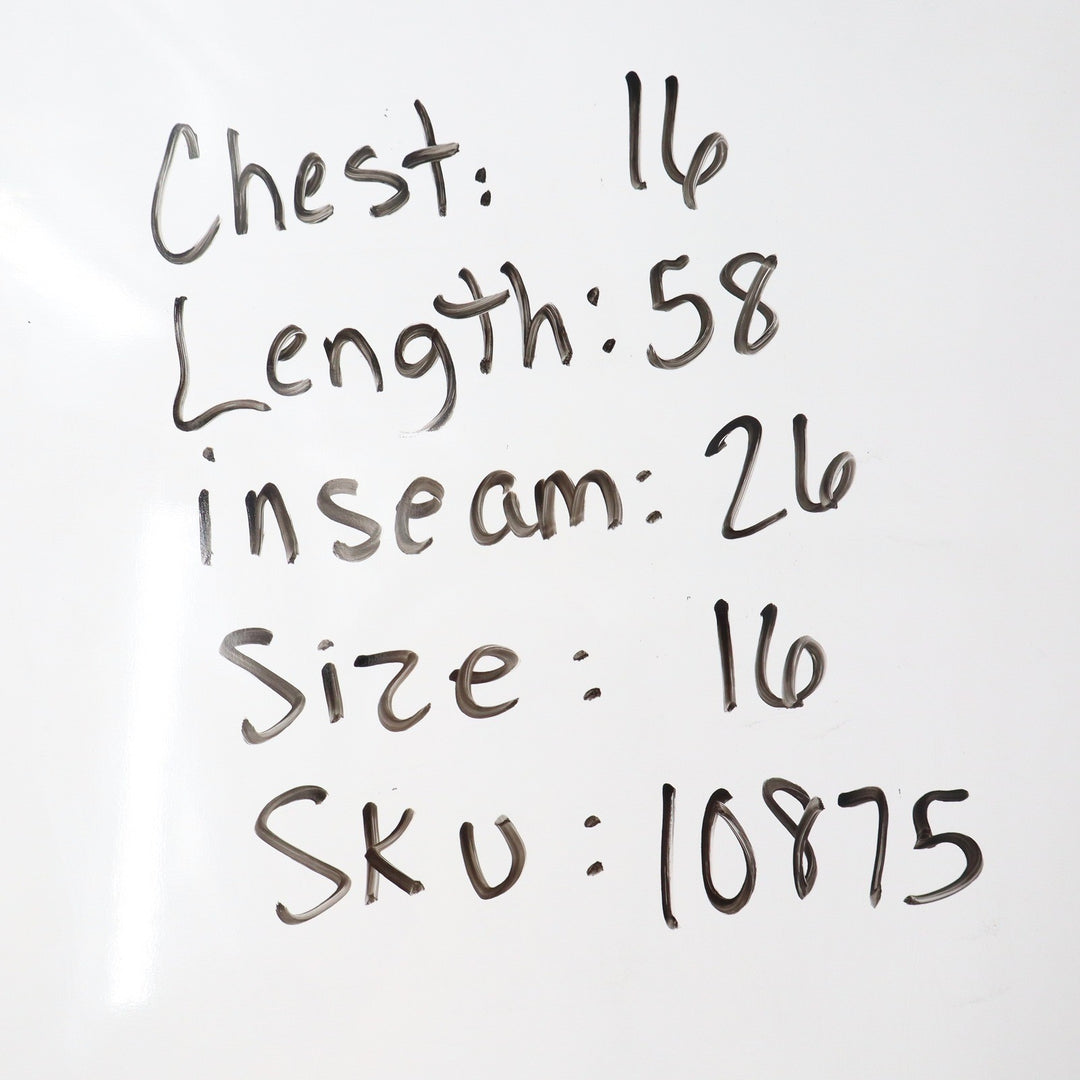 Chest: 16
Length: 58
inseam: 26
Size: 16
SKU: 10875